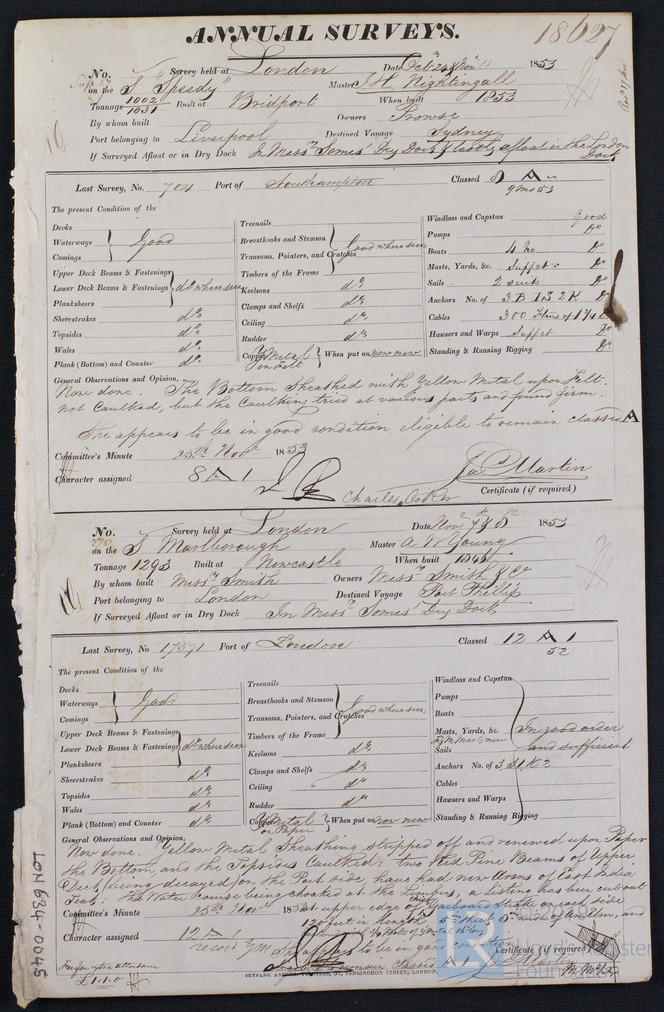 ANNUAL SURVEYS.
18627
No. Survey held at London Date Oct 24 & Nov 11 1853
on the S "Speedy" Master J. H. Nightingall
Tonnage 1002 1031 Built at Bridport When built 1853
By whom built Owners Prowse
Port belonging to Liverpool Destined Voyage Sydney
If Surveyed Afloat or in Dry Dock In Messrs Somes' Dry Dock & afloat in the London Dock
Last Survey, No. 704 Port of Southampton Classed 8 A
9 mo 53
The present Condition of the
Decks
Waterways Good
Comings
Upper Deck Beams & Fastenings
Lower Deck Beams & Fastenings do where seen
Planksheers
Sheerstrakes do
Topsides do
Wales do
Plank (Bottom) and Counter do
Treenails
Breasthooks and Stemson Good where seen
Transoms, Pointers, and Crutches
Timbers of the Frame
Keelsons do
Clamps and Shelfs do
Ceiling do
Rudder do
Copper Y Metal on Felt When put on now new
Windlass and Capstan Good
Pumps Do
Boats 4 No Do
Masts, Yards, &c. Suffet Do
Sails 2 suits Do
Anchors No. of 3 B 1 S 2 K Do
Cables 300 Fthms of 1 3/4 Do
Hawsers and Warps Suffet Do
Standing & Running Rigging Do
General Observations and Opinion,
Now done. The Bottom Sheathed with Yellow Metal upon Felt.
not Caulked, but the Caulking tried at various parts and found firm.
She appears to be in good condition eligible to remain classed A
Committee's Minute 25th Novr 1853
Character assigned 8 A 1
Jas Martin
Certificate (if required)
No. Survey held at London Date Nov 7th & 8th 1853
on the S. Marlborough Master A W Young
Tonnage 1293 Built at Newcastle When built 1846
By whom built Messrs Smith Owners Messrs Smith & Co
Port belonging to London Destined Voyage Port Phillip
If Surveyed Afloat or in Dry Dock In Messrs Somes' Dry Dock
Last Survey, No 17571 Port of London Classed 12 A 1
52
The present Condition of the
Decks
Waterways Good
Comings
Upper Deck Beams & Fastenings
Lower Deck Beams & Fastenings do where seen
Planksheers
Sheerstrakes do
Topsides do
Wales do
Plank (Bottom) and Counter do
Treenails
Breasthooks and Stemson Good where seen
Transoms, Pointers, and Crutches
Timbers of the Frame
Keelsons do
Clamps and Shelfs do
Ceiling do
Rudder do
Copper Y Metal on Paper When put on now new
Windlass and Capstan
Pumps
Boats
Masts, Yards, &c. In good order
Sails and sufficient
Anchors No. of
Cables
Hawsers and Warps
Standing & Running Rigging
General Observations and Opinion,
Now done. Yellow Metal Sheathing stripped off and renewed upon Paper
the Bottom, and the Topsides Caulked: two Red Pine Beams of Upper
Deck (being decayed) on the Port side have had new Arms of East India
Teak: the Water Course being choaked at the Limbers, a Listing has been cut out
at upper edge of Garboard Strake on each side
Committee's Minute 25th Novr 1853
120 feet in length
Character assigned 12 A
She appears to be in good condition
Certificate (if required)
Jas Martin
£1-1-0
SEYFANG AND CO., PRINTERS, 57, FARRINGDON STREET, LONDON.
LON 634-0045
LR
Foundation